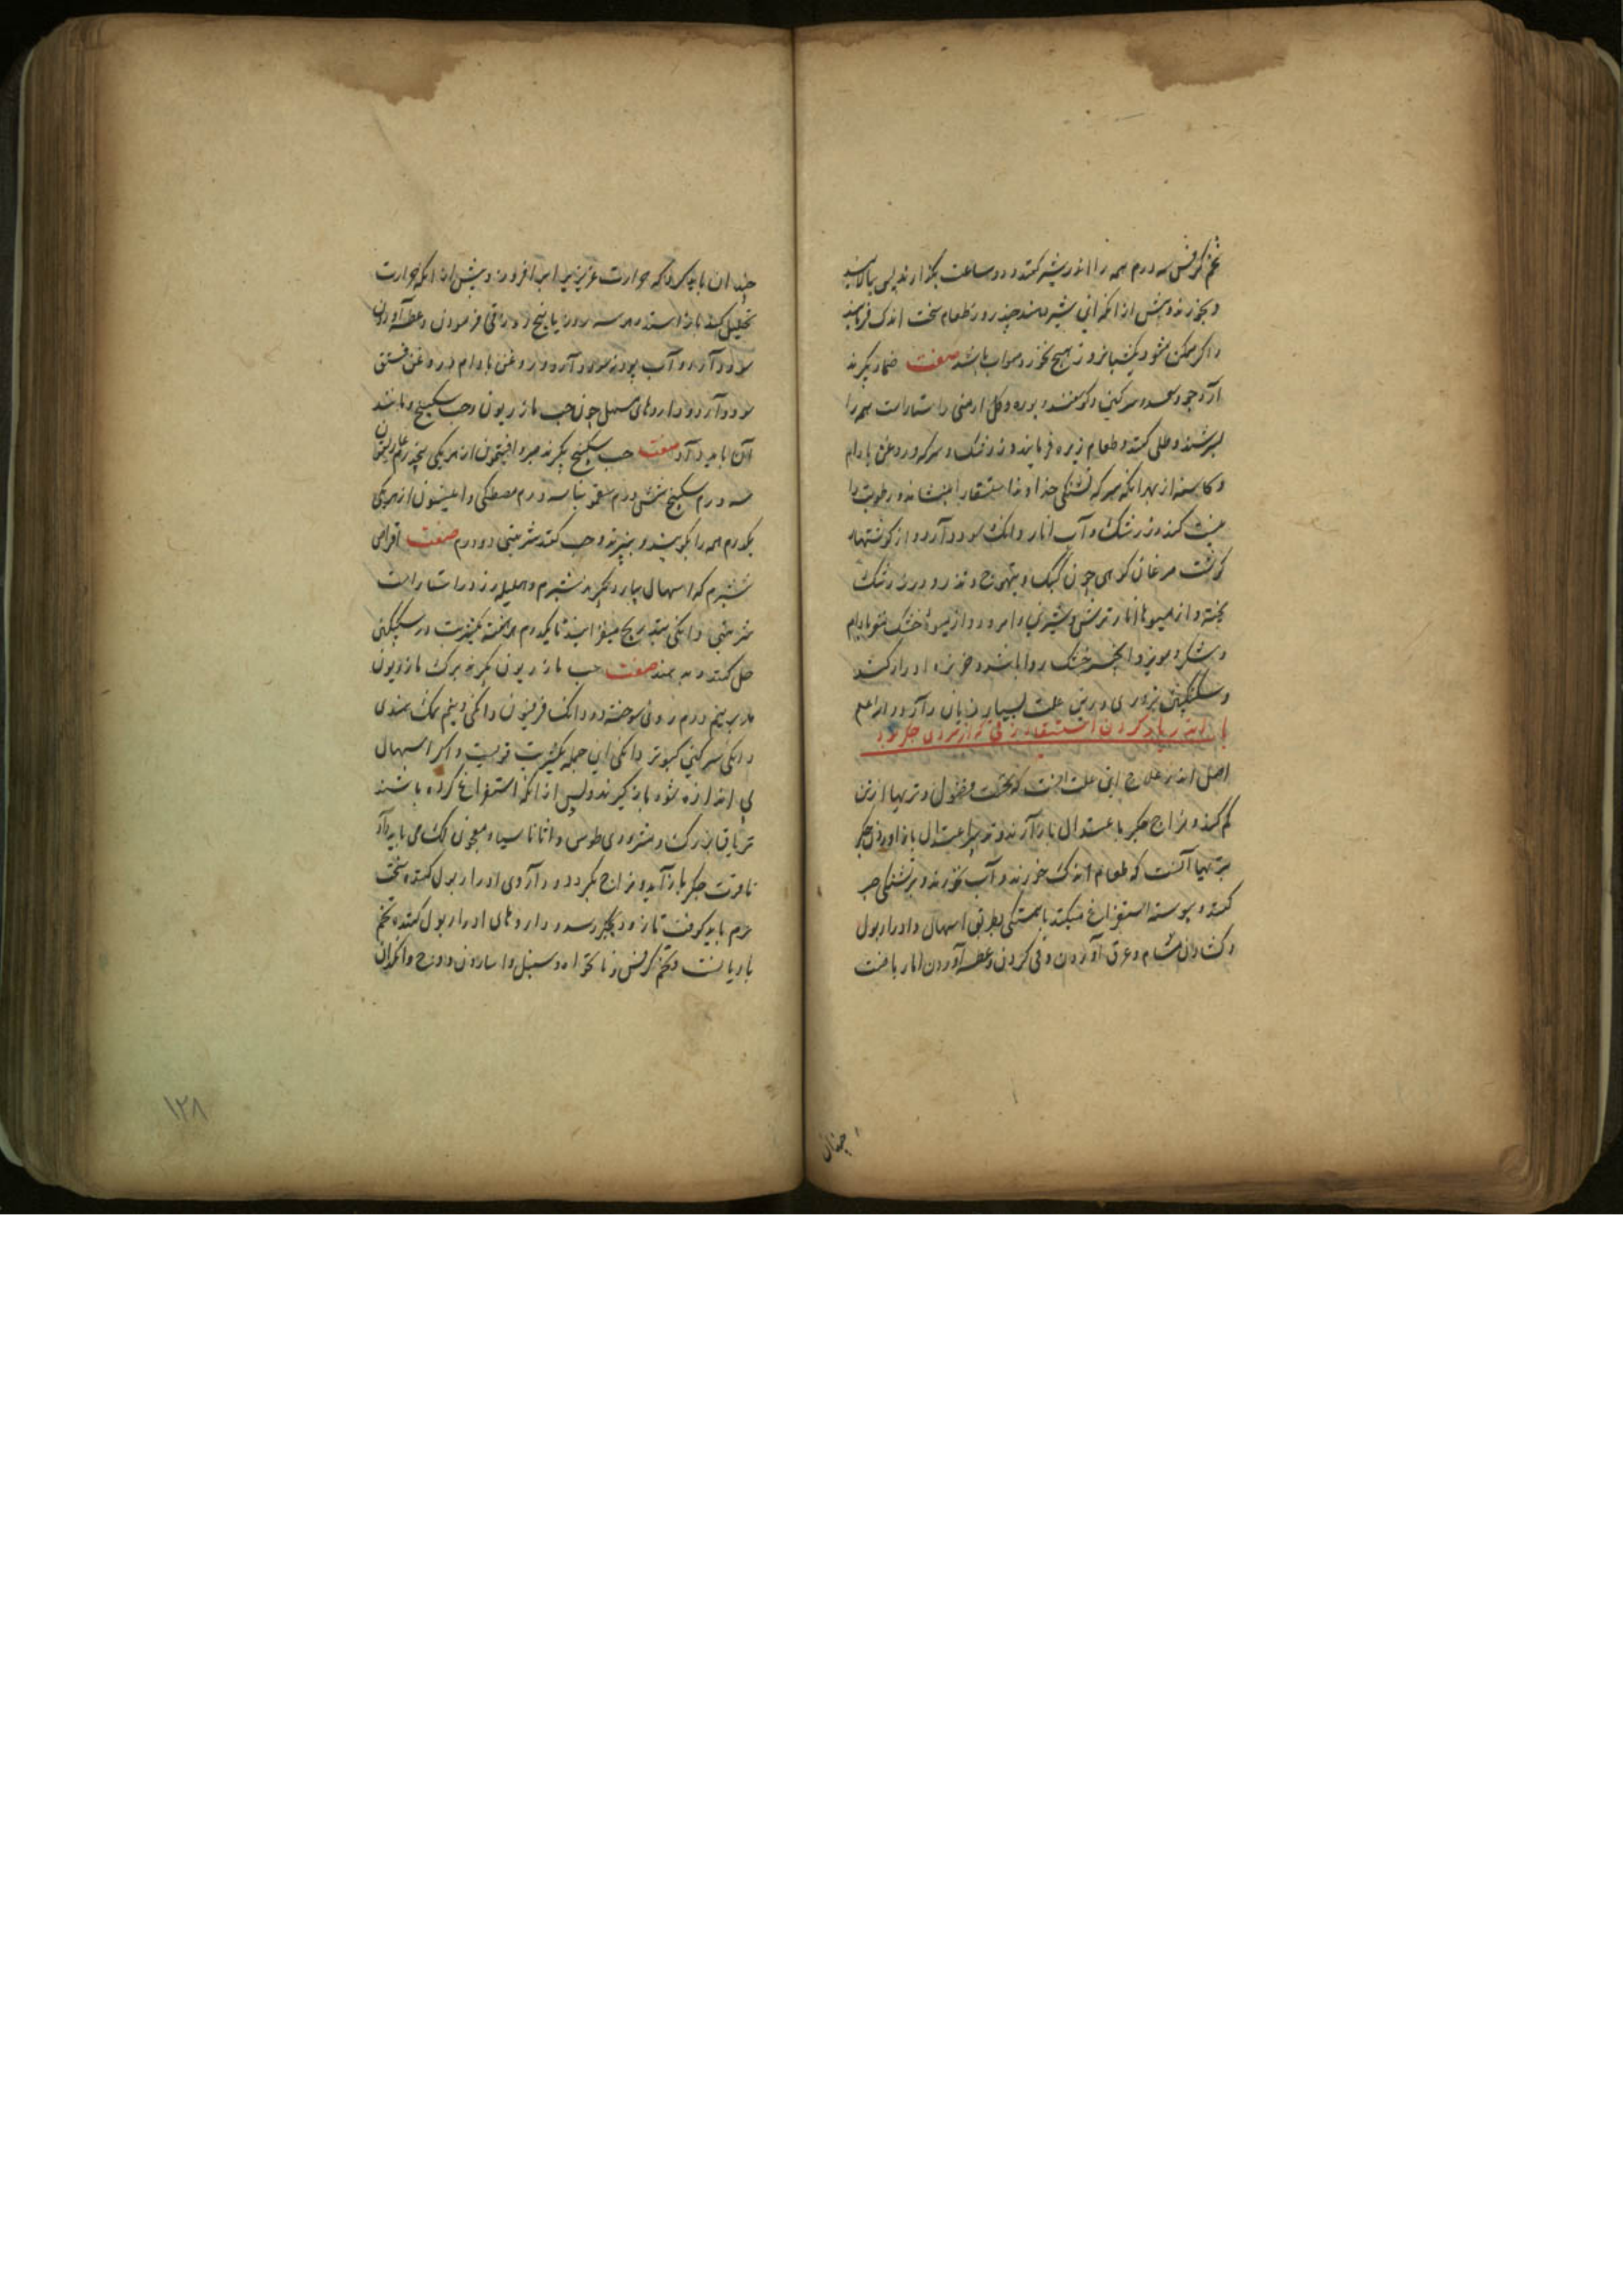 تخم کرفس سه درم همه را اندر شیر کنند و دو ساعت بگذارند پس بپالایند
و بخورند و پیش از انکه این شیر دهند چند روز طعام سخت اندک فرمایند
و اگر ممکن شود یکشبانروز هیچ نخورد صواب باشد صفت ضماد بگیرند
آرد جو و سعد و سرکین کوسفند و بوره و کل ارمنی راستاراست همه را
بسرشند و طلی کنند و طعام زیره فرمایند و زرشک و سرکه و روغن بادام
و کاسنه از بهر انکه سرکه تشنکی خداوند استسقا را بنشاند و رطوبت را
کند و زرشک و آب انار دانک سود دارد و از کوشتها
کوشت مرغان کوهی چون کبک و تیهوج و تذرو و زرشک
پخته و از میوها انار ترش و شیرین و امرود و از میوهٔ خشک مغز بادام
و شکر و مویز و انجیر خشک روا باشد و خربزه ادرار کند
و سکنکبین بزوری درین علت بسیار زیان دارد و الله اعلم
باب اندر یاد کردن استسقاء زقی که از سردی جکر بود
اصل اندر علاج این علت انست که نخست فضول و تریها ازتن
کم کنند و مزاج جکر باعتدال بازآرند و تدبیر اعتدال باز اوردن جکر
تریها آنست که طعام اندک خورند و آب نخورند و بر تشنکی صبر
کنند و پیوسته استفراغ میکنند باهستکی بطریق اسهال و ادرار بول
و کشادن مسام و عرق آوردن و قی کردن و عطسه آوردن اما ریاضت
چنان
چندان باید کرد که حرارت عزیزی را برافروزد و پیش از انکه حرارت
تحلیل کند باز ایستد و هر سه روز یا پنج روز قی فرمودن و عطسه آوردن
سود دارد و آب پودنه سود دارد و روغن بادام و روغن فستق
سود دارد و داروهای مسهل چون حب مازریون و حب سکبینج و مانند
آن باید داد صفت حب سکبینج بگیرند صبر و افتیمون از هر یکی پنجدرم غاریقون
سه درم سکبینج شش درم سقمونیا سه درم مصطکی و انیسون از هر یکی
یکدرم همه را بکوبند و ببیزند و حب کنند شربتی دو درم صفت اقراص
شبرم که اسهال بیارد بگیرند شبرم و هلیلهٔ زرد راستاراست
شربتی دانکی بتدریج میفزایند تا یکدرم هر هفته یکشربت در سکنکبین
حل کنند و بدهند صفت حب مازریون بگیرند برک مازریون
مدبر نیم درم روی سوخته دو دانک فرفیون دانکی و نیم نمک هندی
دانکی سرکین کبوتر دانکی این جمله یکشربت قویست و اکر اسهال
بی اندازه شود باز کیرند و پس از انکه استفراغ کرده باشند
تریاق بزرک و مثرودیطوس و اثاناسیا و معجون لک می باید داد
تا قوت جکر بازآید و مزاج بگردد و داروی ادرار بول کنند سخت
نرم باید کوفت تا زود بجگر رسد و داروهای ادرار بول کننده تخم
بادیانست و تخم کرفس و نانخواه و سنبل و اسارون و دوج و انکدان
۱۲۸